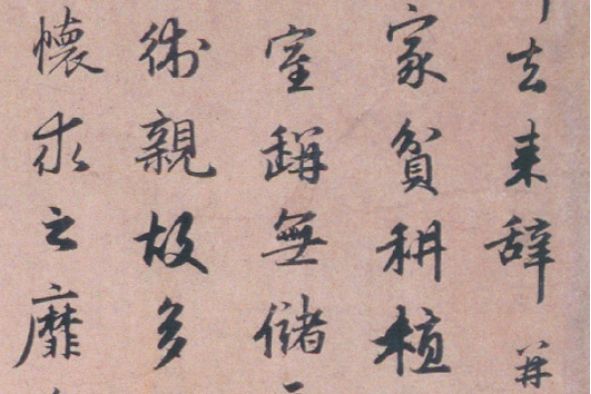 去来辞并
家貧耕植
室缾無儲
術親故多
懷求之靡